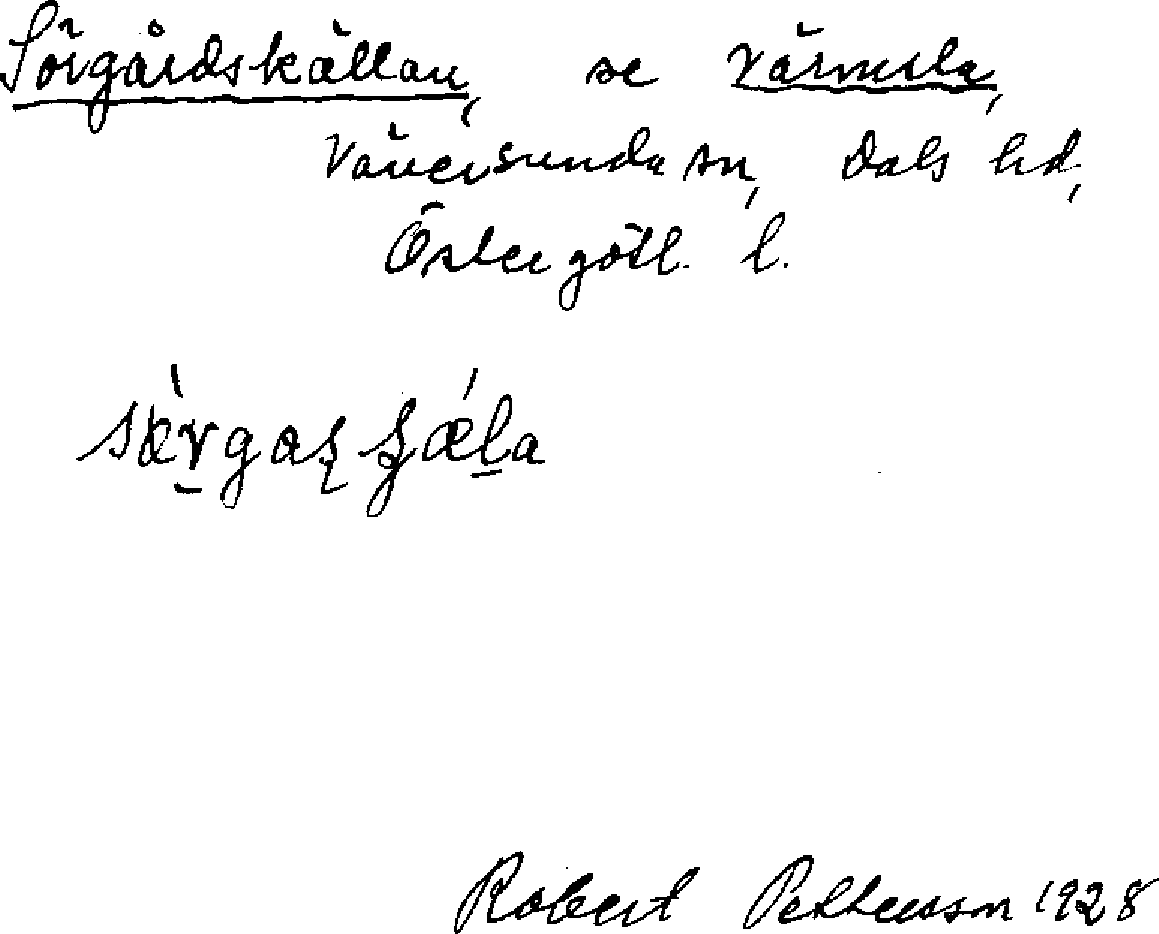 Sörgårdskällan, se Värmesla,
Väversunda sn, Dals hd,
Östergötl. l.
Robert Pettersson 1928